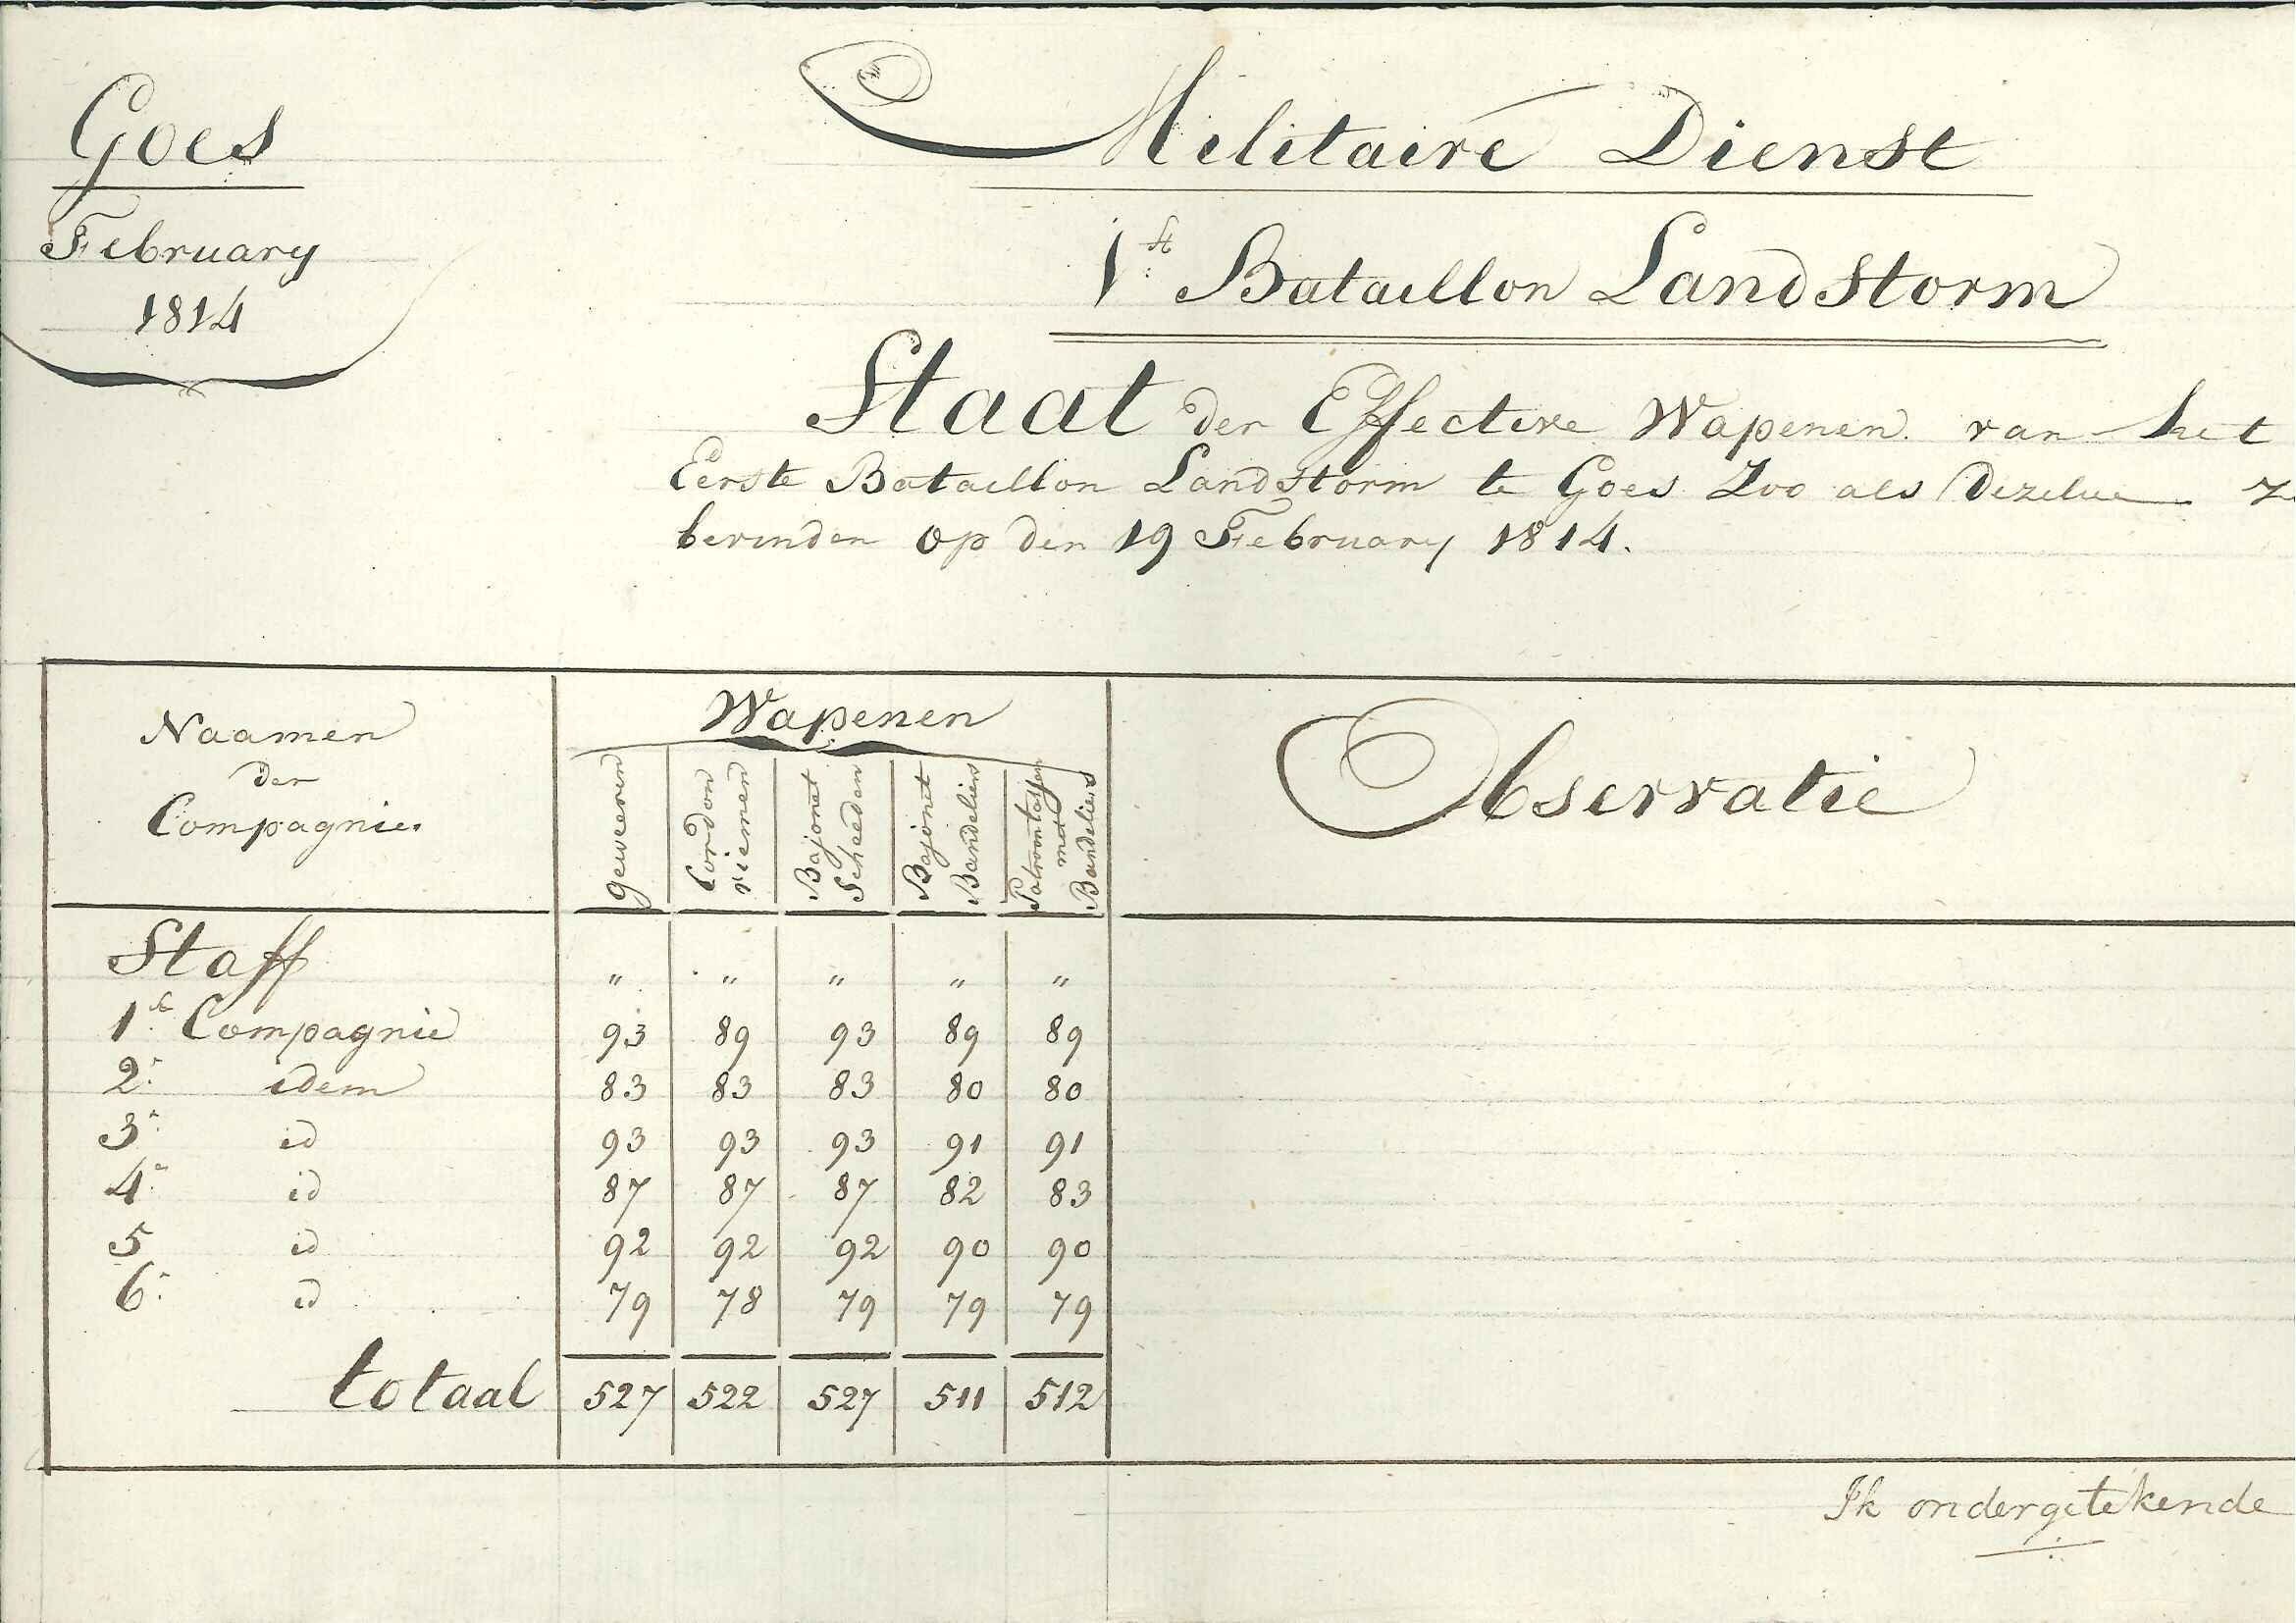 Goes
February
1814
Militaire Dienst
1st Bataillon Landstorm
Staat der Effective Wapenen van het
Eerste Bataillon Landstorm te Goes Zoo als Dezelve
bevinden op den 19 February 1814.
Naamen
der
Compagnies
Wapenen
Geweeren
Cordon
riemen
Bajonet
Scheeden
Bajonet
Bandeliers
Patroontassen
met
Bandeliers
Observatie
Staff " " " " "
1e Compagnie 93 89 93 89 89
2e idem 83 83 83 80 80
3e id 93 93 93 91 91
4e id 87 87 87 82 83
5 id 92 92 92 90 90
6e id 79 78 79 79 79
totaal 527 522 527 511 512
Ik ondergetekende